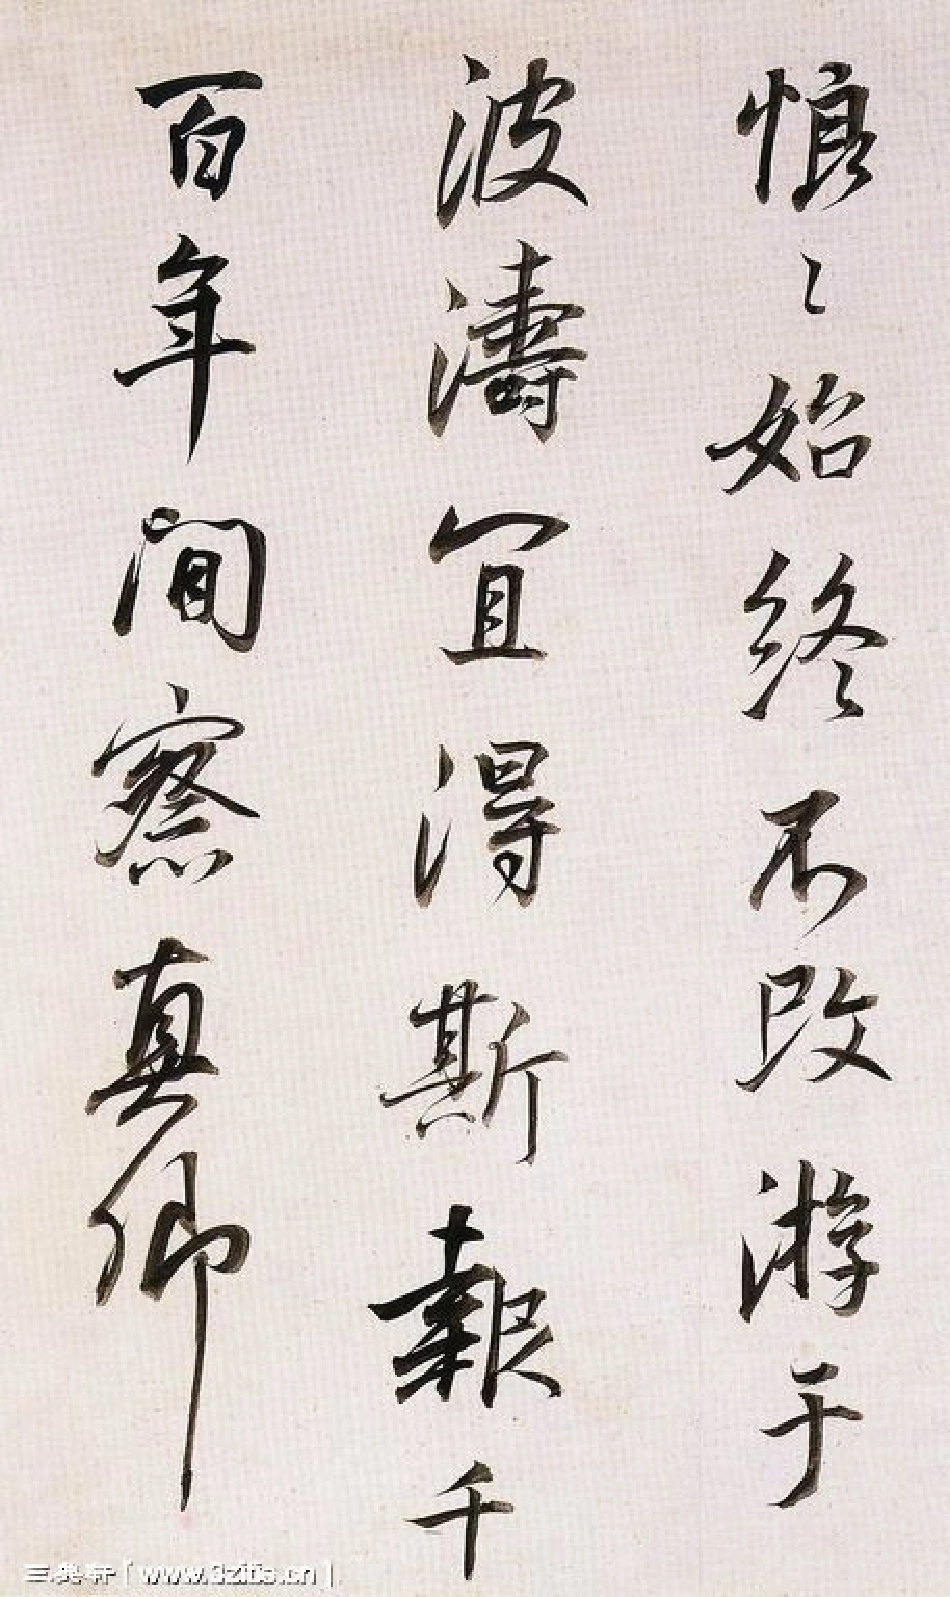 恨〻始终不改游于
波濤宜得斯報千
百年間察真卿
三典轩[www.3zitie.cn]